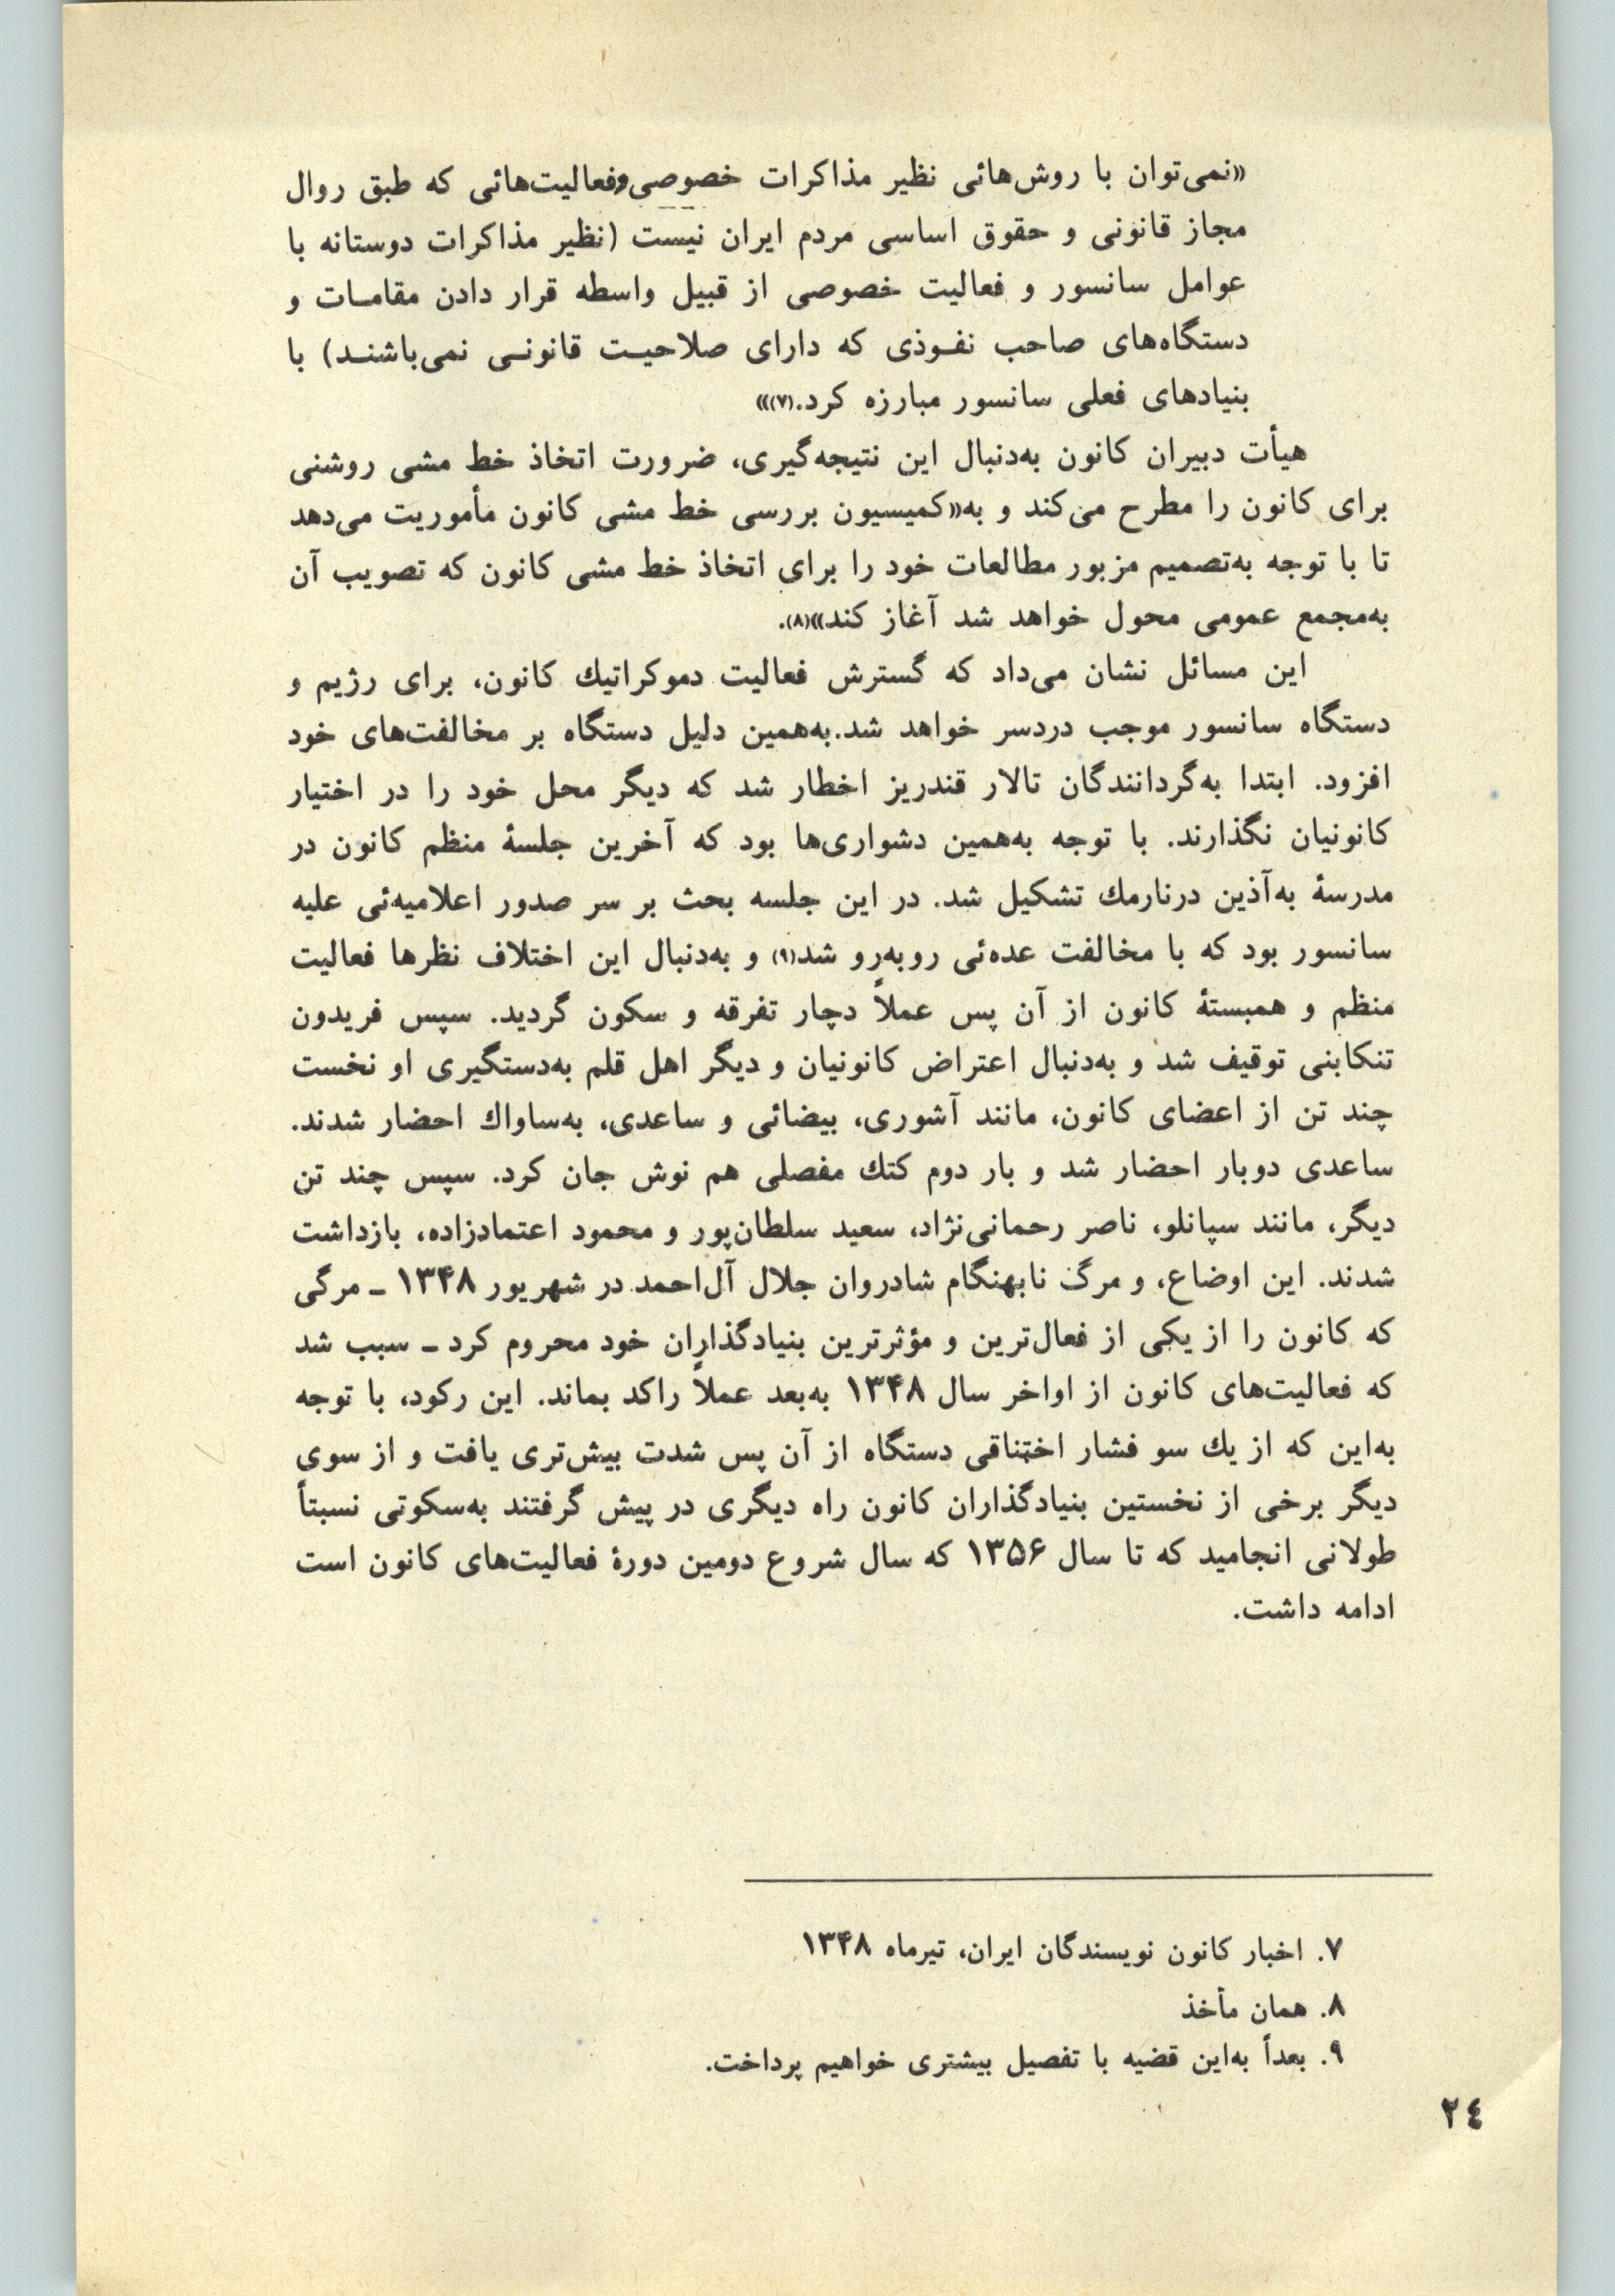 «نمی‌توان با روش‌هائی نظیر مذاکرات خصوصی‌وفعالیت‌هائی که طبق روال
مجاز قانونی و حقوق اساسی مردم ایران نیست (نظیر مذاکرات دوستانه با
عوامل سانسور و فعالیت خصوصی از قبیل واسطه قرار دادن مقامـات و
دستگاه‌های صاحب نفـوذی که دارای صلاحیـت قانونـی نمی‌باشنـد) با
بنیادهای فعلی سانسور مبارزه کرد.(۷)»
هیأت دبیران کانون به‌دنبال این نتیجه‌گیری، ضرورت اتخاذ خط مشی روشنی
برای کانون را مطرح می‌کند و به«کمیسیون بررسی خط مشی کانون مأموریت می‌دهد
تا با توجه به‌تصمیم مزبور مطالعات خود را برای اتخاذ خط مشی کانون که تصویب آن
به‌مجمع عمومی محول خواهد شد آغاز کند»(۸).
این مسائل نشان می‌داد که گسترش فعالیت دموکراتیك کانون، برای رژیم و
دستگاه سانسور موجب دردسر خواهد شد.به‌همین دلیل دستگاه بر مخالفت‌های خود
افزود. ابتدا به‌گردانندگان تالار قندریز اخطار شد که دیگر محل خود را در اختیار
کانونیان نگذارند. با توجه به‌همین دشواری‌ها بود که آخرین جلسهٔ منظم کانون در
مدرسهٔ به‌آذین درنارمك تشکیل شد. در این جلسه بحث بر سر صدور اعلامیه‌ئی علیه
سانسور بود که با مخالفت عده‌ئی روبه‌رو شد(۹) و به‌دنبال این اختلاف نظرها فعالیت
منظم و همبستهٔ کانون از آن پس عملاً دچار تفرقه و سکون گردید. سپس فریدون
تنکابنی توقیف شد و به‌دنبال اعتراض کانونیان و دیگر اهل قلم به‌دستگیری او نخست
چند تن از اعضای کانون، مانند آشوری، بیضائی و ساعدی، به‌ساواك احضار شدند.
ساعدی دوبار احضار شد و بار دوم کتك مفصلی هم نوش جان کرد. سپس چند تن
دیگر، مانند سپانلو، ناصر رحمانی‌نژاد، سعید سلطان‌پور و محمود اعتمادزاده، بازداشت
شدند. این اوضاع، و مرگ نابهنگام شادروان جلال آل‌احمد در شهریور ۱۳۴۸ ـ مرگی
که کانون را از یکی از فعال‌ترین و مؤثرترین بنیادگذاران خود محروم کرد ـ سبب شد
که فعالیت‌های کانون از اواخر سال ۱۳۴۸ به‌بعد عملاً راکد بماند. این رکود، با توجه
به‌این که از یك سو فشار اختناقی دستگاه از آن پس شدت بیش‌تری یافت و از سوی
دیگر برخی از نخستین بنیادگذاران کانون راه دیگری در پیش گرفتند به‌سکوتی نسبتاً
طولانی انجامید که تا سال ۱۳۵۶ که سال شروع دومین دورهٔ فعالیت‌های کانون است
ادامه داشت.
۷. اخبار کانون نویسندگان ایران، تیرماه ۱۳۴۸
۸. همان مأخذ
۹. بعداً به‌این قضیه با تفصیل بیشتری خواهیم پرداخت.
٢٤